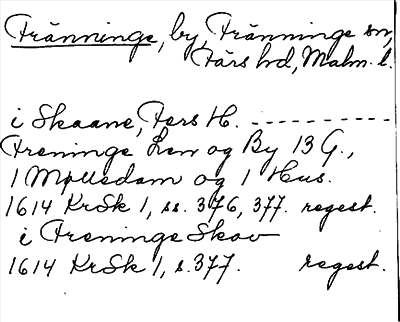 Tränninge, by, Tränninge sn,
Färs hd, Malm. l.
i Skaane, Fers H. -----------
Freninge Len og By 13 G.,
1 Mølledam og 1 Hus.
1614 KrSk 1, ss. 376, 377. regest.
i Freninge Skov
1614 KrSk 1, s. 377. regest.